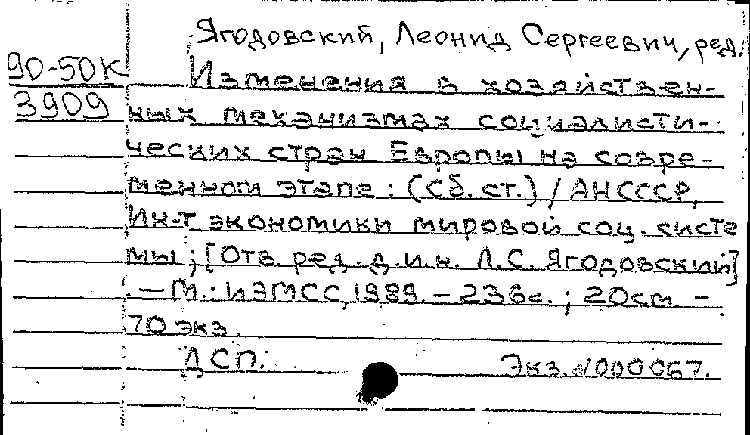 Ягодовский, Леонид Сергеевич, ред.
90-50К
Изменения в хозяйствен-
3909
ных механизмах социалисти-
ческих стран Европы на совре-
менном этапе : (Сб. ст.) / АНСССР,
Ин-т экономики мировой соц. систе
мы ; [Отв. ред. д.и.н. Л.С. Ягодовский]
. — М. : ИЭМСС, 1989. — 236с. ; 20см —
70 экз.
ДСП.
Экз. N000067.